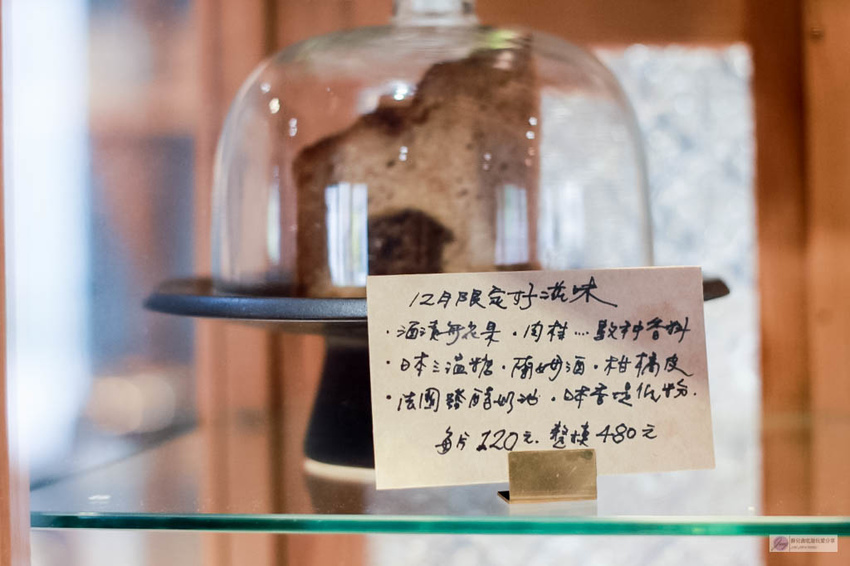 12月限定好滋味
·酒漬無花果·肉桂…數种香料
·日本三溫糖·蘭姆酒·柑橘皮
·法國發酵奶油·日本香堤低粉.
每片120元.整模480元